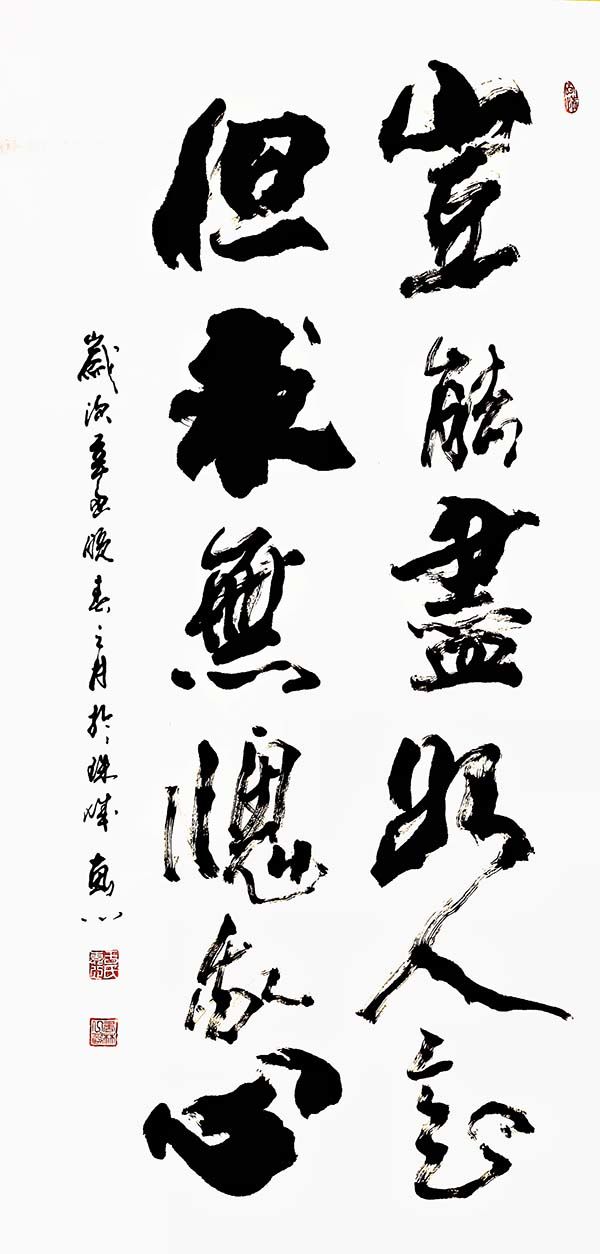 豈能盡如人意
但求無愧我心
歲次辛丑晚春之月於珠城